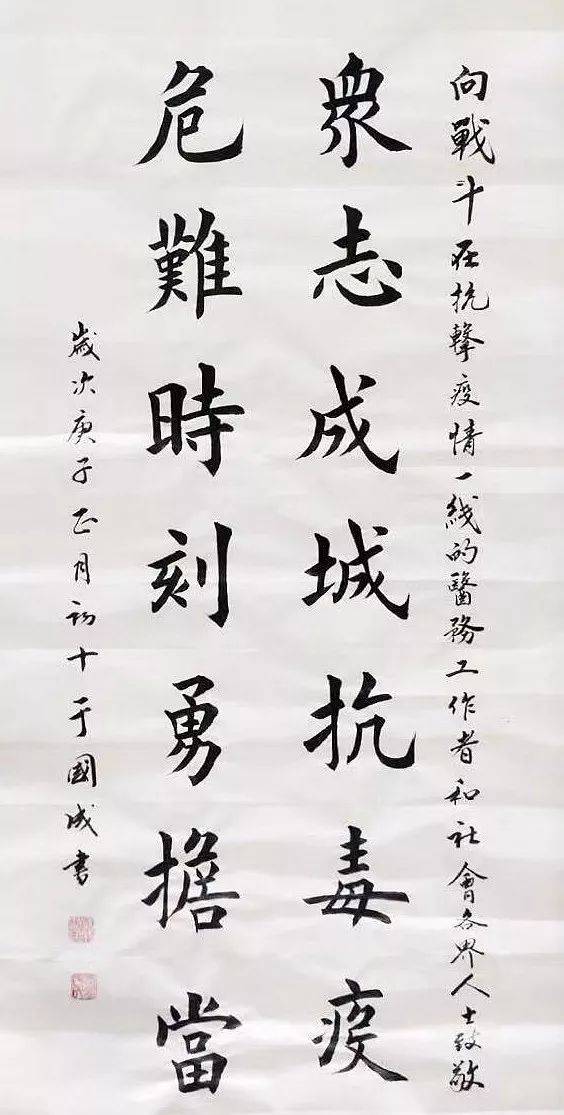 向戰斗在抗擊疫情一綫的醫務工作者和社會各界人士致敬
衆志成城抗毒疫
危難時刻勇擔當
歲次庚子正月初十于國成書